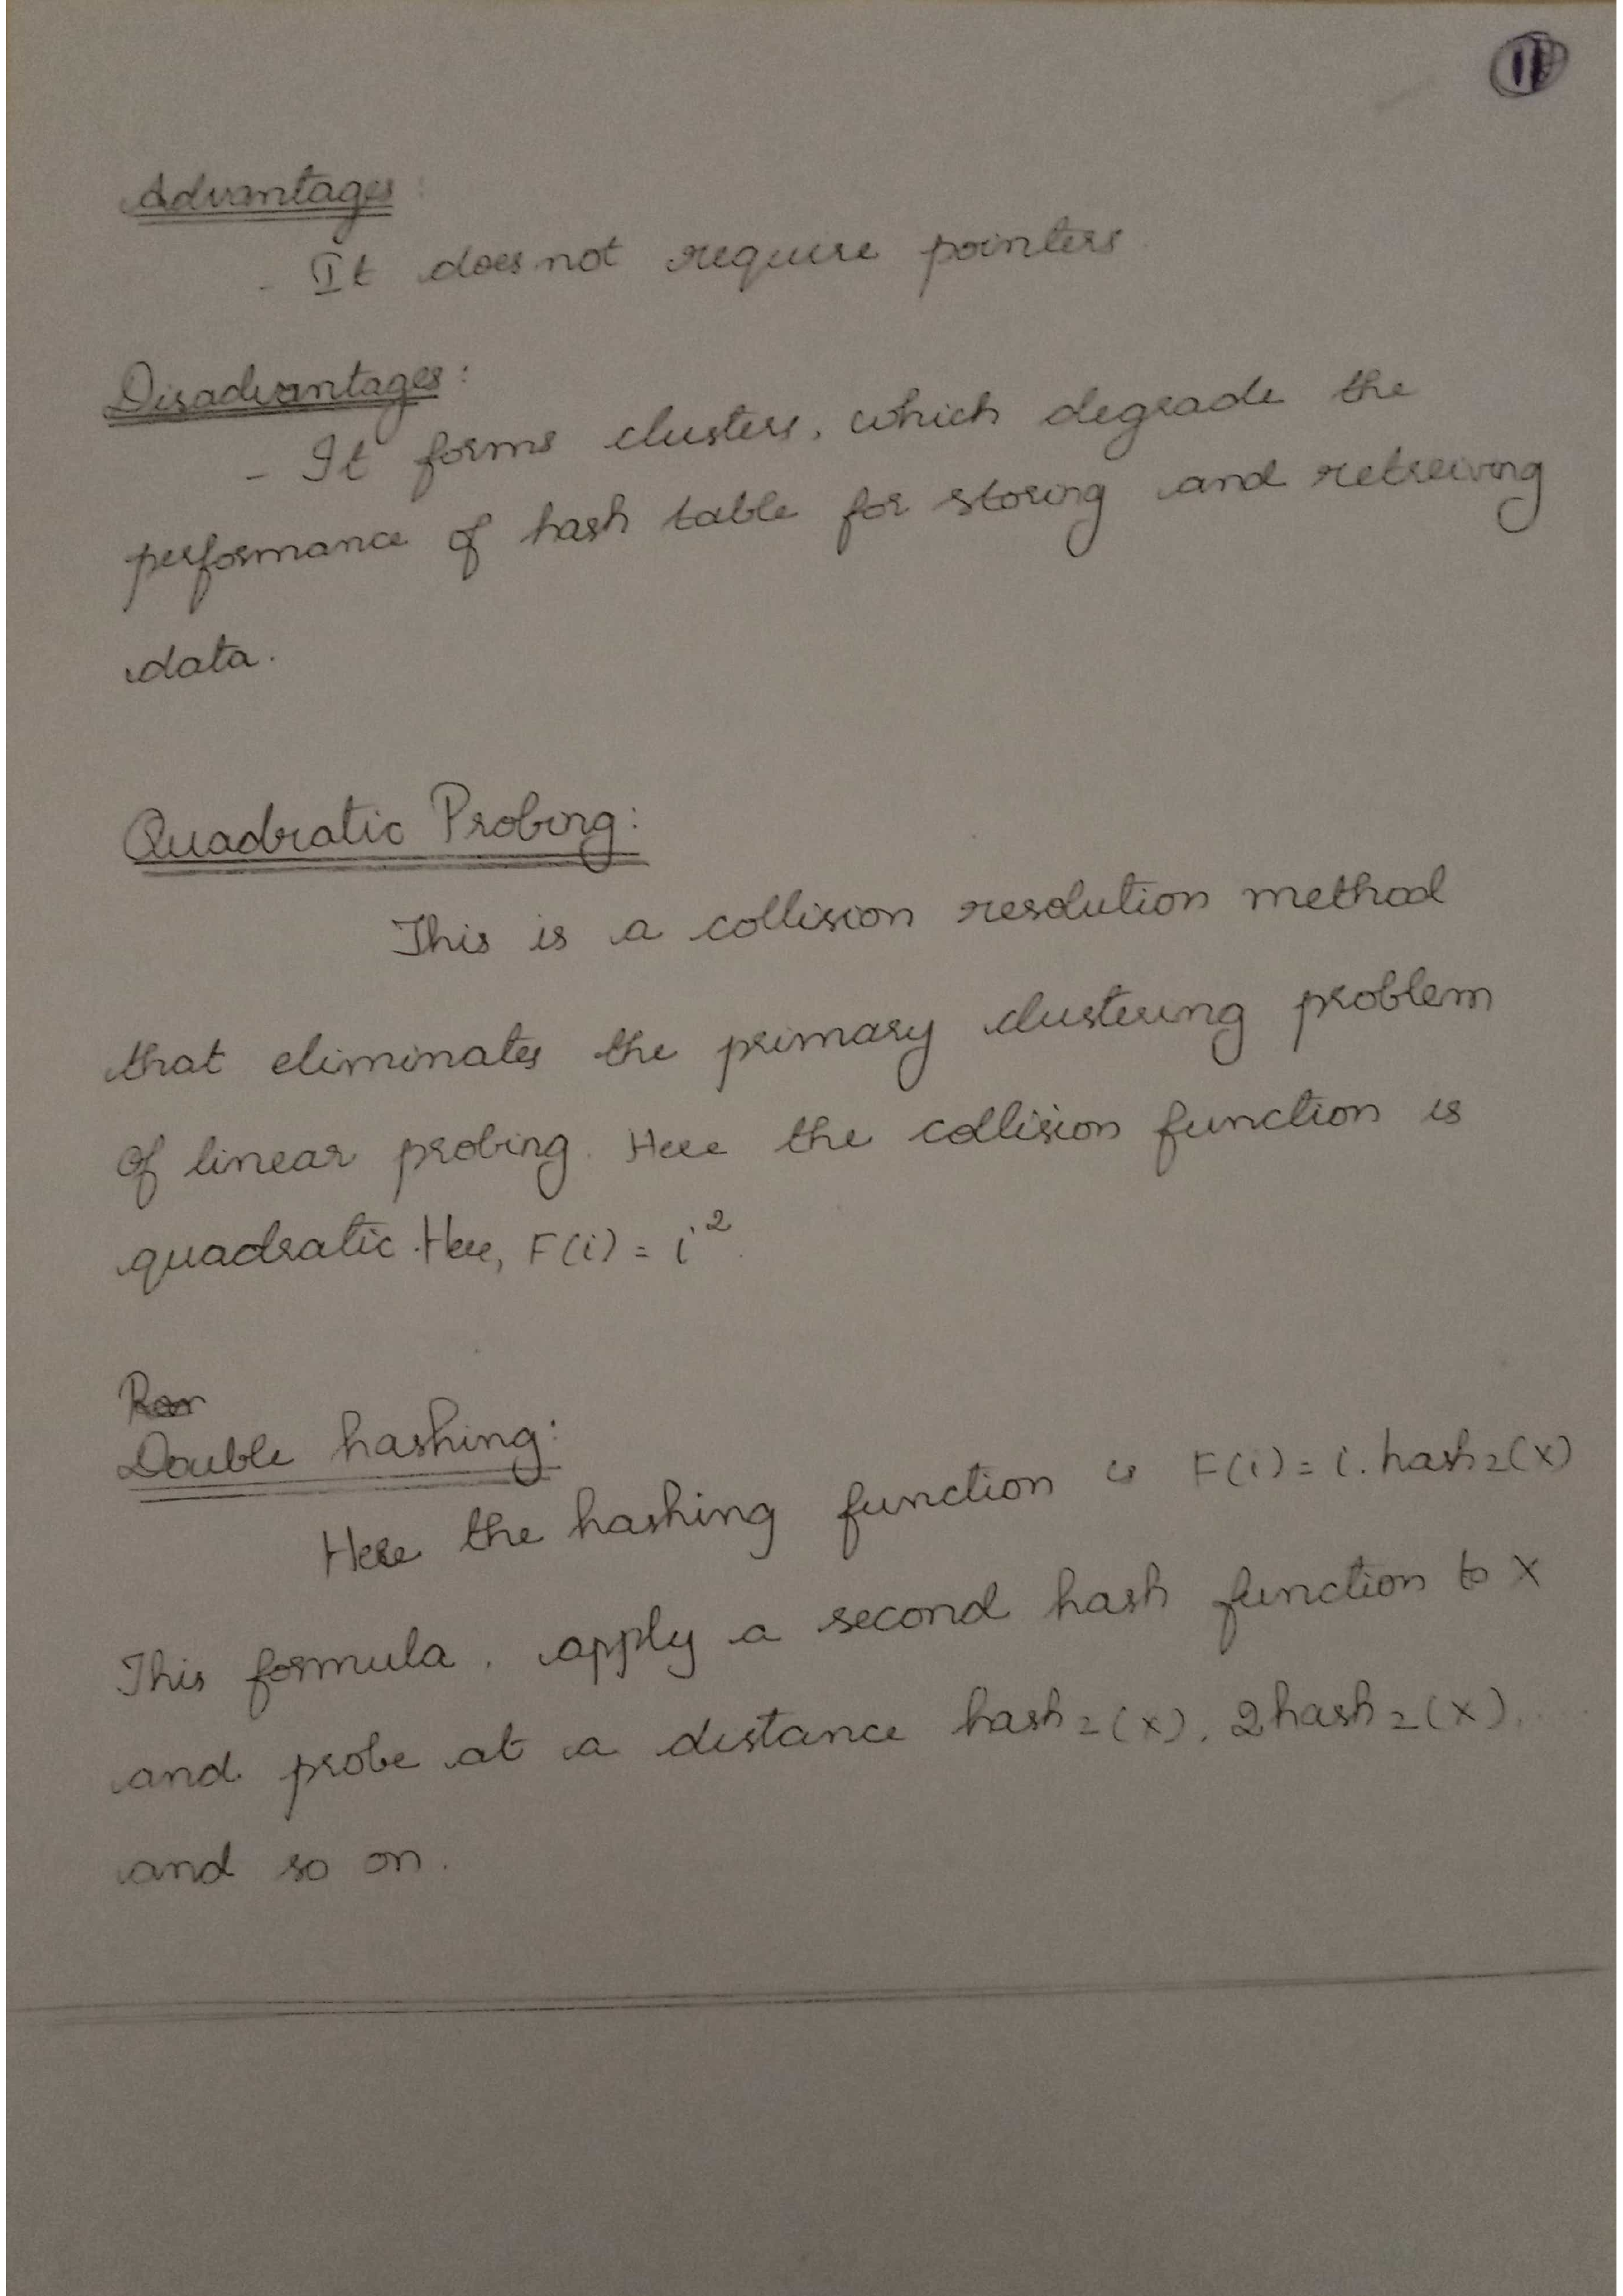 11
Advantages:
- It does not require pointers
Disadvantages:
- It forms clusters, which degrade the
performance of hash table for storing and retreiving
data.
Quadratic Probing:
This is a collision resolution method
that eliminates the primary clustering problem
of linear probing. Here the collision function is
quadratic. Here, F(i) = i².
Double hashing:
Here the hashing function is F(i) = i. hash₂(X)
This formula, apply a second hash function to X
and probe at a distance hash₂(X), 2hash₂(X),
and so on.